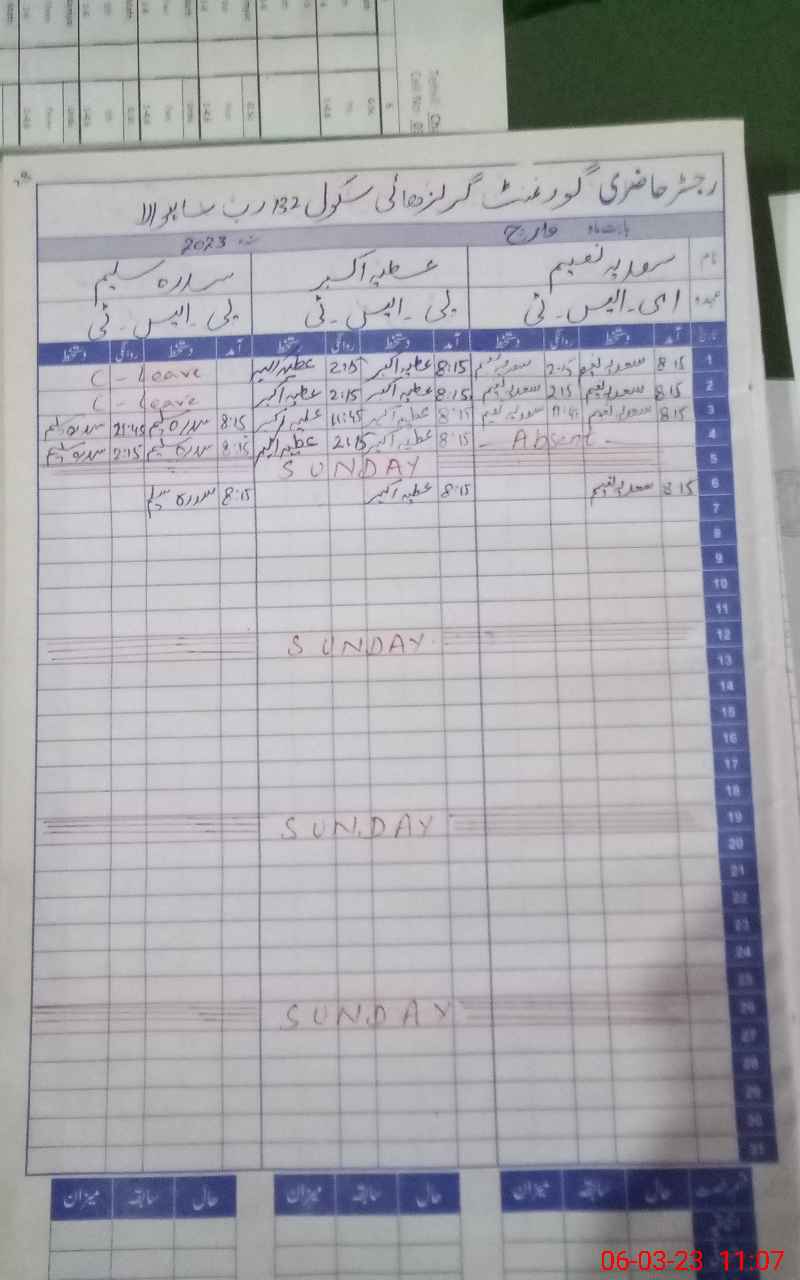 رجسٹر حاضری گورنمنٹ گرلز ہائی سکول 132 رب ساہووالا
بابت ماہ مارچ سنہ 2023
نام سعدیہ نعیم عطیہ اکبر سدرہ سلیم
عہدہ ای۔ایس۔ٹی پی۔ایس۔ٹی پی۔ایس۔ٹی
تاریخ آمد دستخط روانگی دستخط آمد دستخط روانگی دستخط آمد دستخط روانگی دستخط
1 8:15 سعدیہ نعیم 2:15 سعدیہ نعیم 8:15 عطیہ اکبر 2:15 عطیہ اکبر C - Leave
2 8:15 سعدیہ نعیم 2:15 سعدیہ نعیم 8:15 عطیہ اکبر 2:15 عطیہ اکبر C - Leave
3 8:15 سعدیہ نعیم 11:45 سعدیہ نعیم 8:15 عطیہ اکبر 11:45 عطیہ اکبر 8:15 سدرہ سلیم 11:45 سدرہ سلیم
4 - Absent - 8:15 عطیہ اکبر 2:15 عطیہ اکبر 8:15 سدرہ سلیم 2:15 سدرہ سلیم
5 SUNDAY
6 8:15 سعدیہ نعیم 8:15 عطیہ اکبر 8:15 سدرہ سلیم
7
8
9
10
11
12 SUNDAY
13
14
15
16
17
18
19 SUNDAY
20
21
22
23
24
25
26 SUNDAY
27
28
29
30
31
حال سابقہ میزان حال سابقہ میزان حال سابقہ میزان
06-03-23 11:07